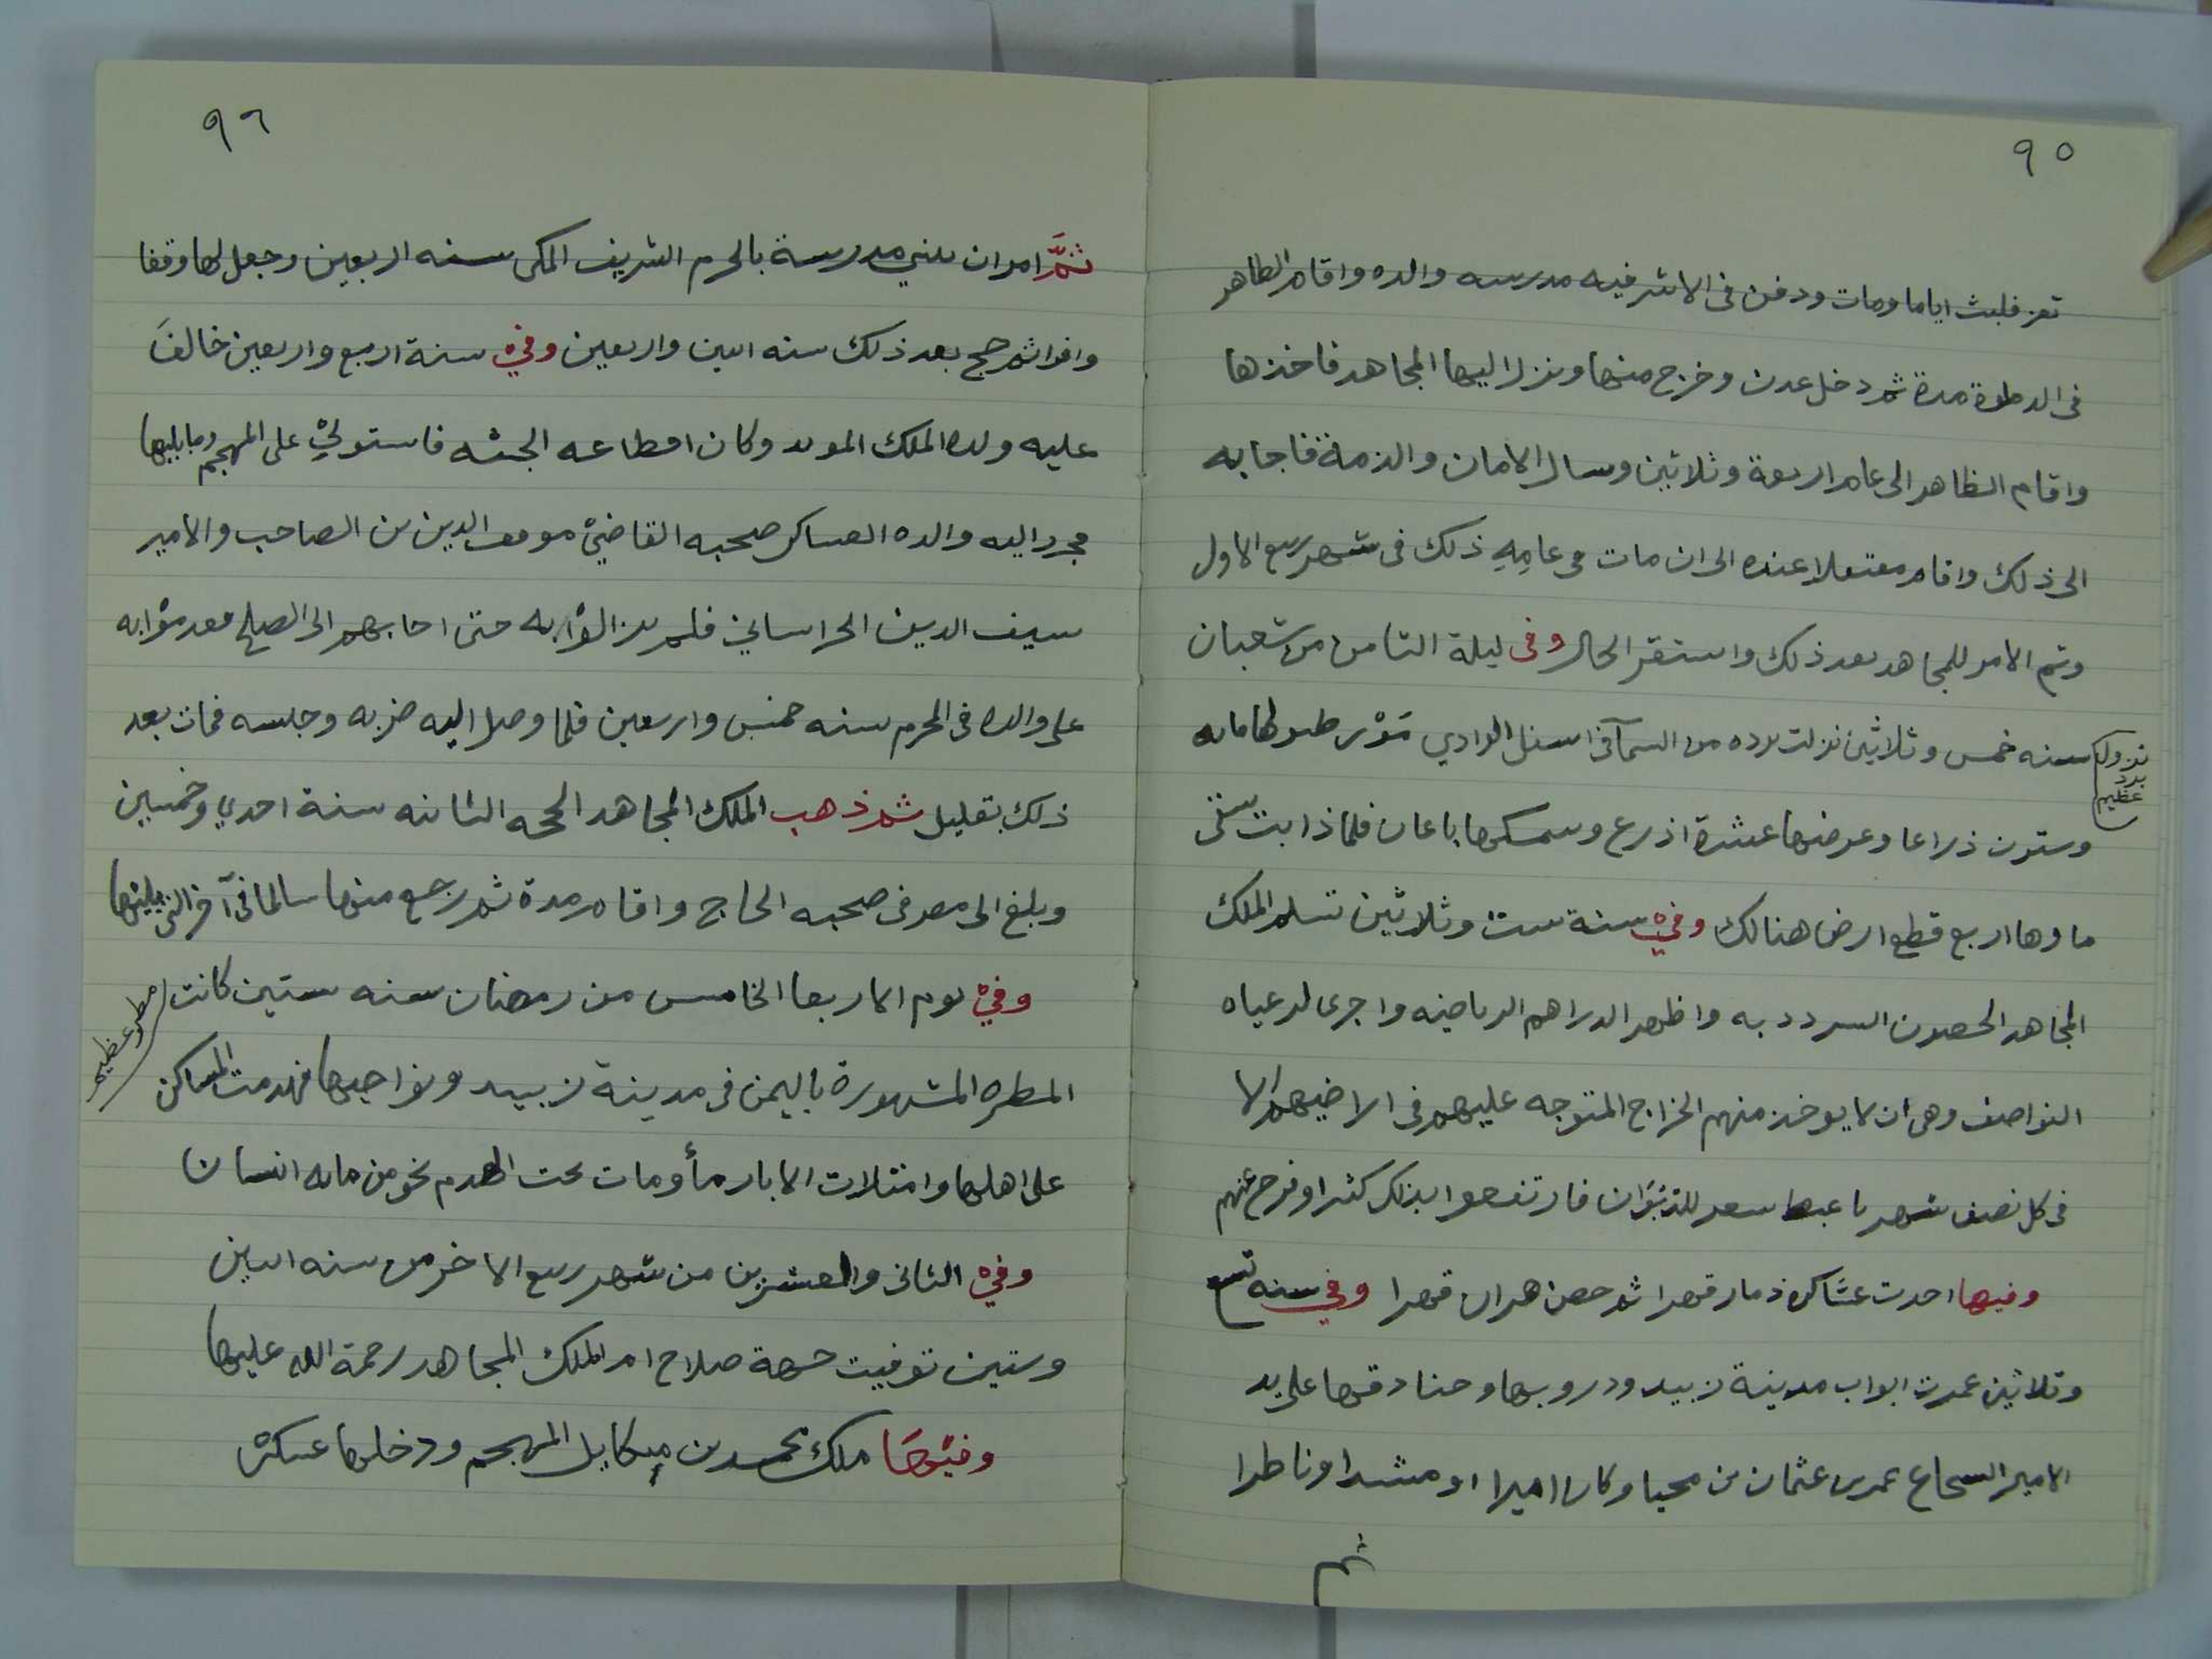 ٩٥
تعز فلبث اياما ومات ودفن فى الاشرفيه مدرسه والده واقام الظاهر
فى الدملوة مدة ثم دخل عدن وخرج منها ونزل اليها المجاهد فاخذها
واقام الظاهر الى عام اربعة وثلاثين وسال الامان والذمة فاجابه
الى ذلك واقام معتقلا عنده الى ان مات فى عامِهِ ذلك فى شهر ربيع الاول
وتم الامر للمجاهد بعد ذلك واستقر الحال وفى ليلة الثامن من شعبان
سنه خمس وثلاثين نزلت برده من السمآ فى اسفل الوادي مَوْر طولها مايه
نزول
برد
عظيم
وستون ذراعا وعرضها عشرة اذرع وسمكها باعان فلما ذابت سقى
ماوها اربع قطع ارض هنالك وفي سنة ست وثلاثين تسلم الملك
المجاهد الحصون السرددبه واظهر الدراهم الرياضيه واجرى لرعياه
النواصف وهى ان لا يوخذ منهم الخراج المتوجه عليهم فى اراضيهم الا
فى كل نصف شهر ما عبها سعر للديَوان فارتفعوا بذلك كثيرا وفرح عنهم
وفيها احدت عشاكره ذمار قهرا ثم حصن هران قهرا وفي سنه تسع
وثلاثين عمرت ابواب مدينة زبيد ودروبها وخنادقها على يد
الامير السحاع عمر بن عثمان بن محيا وكان اميرا او مشدا وناظرا
ثم
٩٦
ثمَّ امر ان يبني مدرسة بالحرم الشريف المكى سنه اربعين وجعل لها وقفا
وافرا ثم حج بعد ذلك سنه اثنين واربعين وفي سنة اربع واربعين خالفَ
عليه ولده الملك المويد وكان اقطاعه الجثه فاستولي على المهجم وما يليها
فجرد اليه والده العساكر صحبه القاضي موفق الدين بن الصاحب والامير
سيف الدين الخراساني فلم يزالوْا به حتى اجابهم الى الصلح فقدموْا به
على والده فى المحرم سنه خمس واربعين فلما وصل اليه ضربه وحبسه فمات بعد
ذلك بقليل ثم ذهب الملك المجاهد الحجه الثانيه سنة احدي وخمسين
وبلغ الى مصر فى صحبه الحاج واقام مدة ثم رجع منها سالما فى آخر التى يليها
وفي يوم الاربعا الخامس من رمضان سنه ستين كانت
مطر عظيم
المطره المشهورة باليمن فى مدينة زبيد ونواحيها فهدمت المساكن
على اهلها وامتلات الابار مأ ومات تحت الهدم نحو من مايه انسان
وفي الثانى والعشرين من شهر ربيع الاخر من سنه اثنين
وستين توفيت جهة صلاح ام الملك المجاهد رحمة الله عليها
وفيْهَا ملك محمد بن ميكايل المهجم ودخلها عسكره